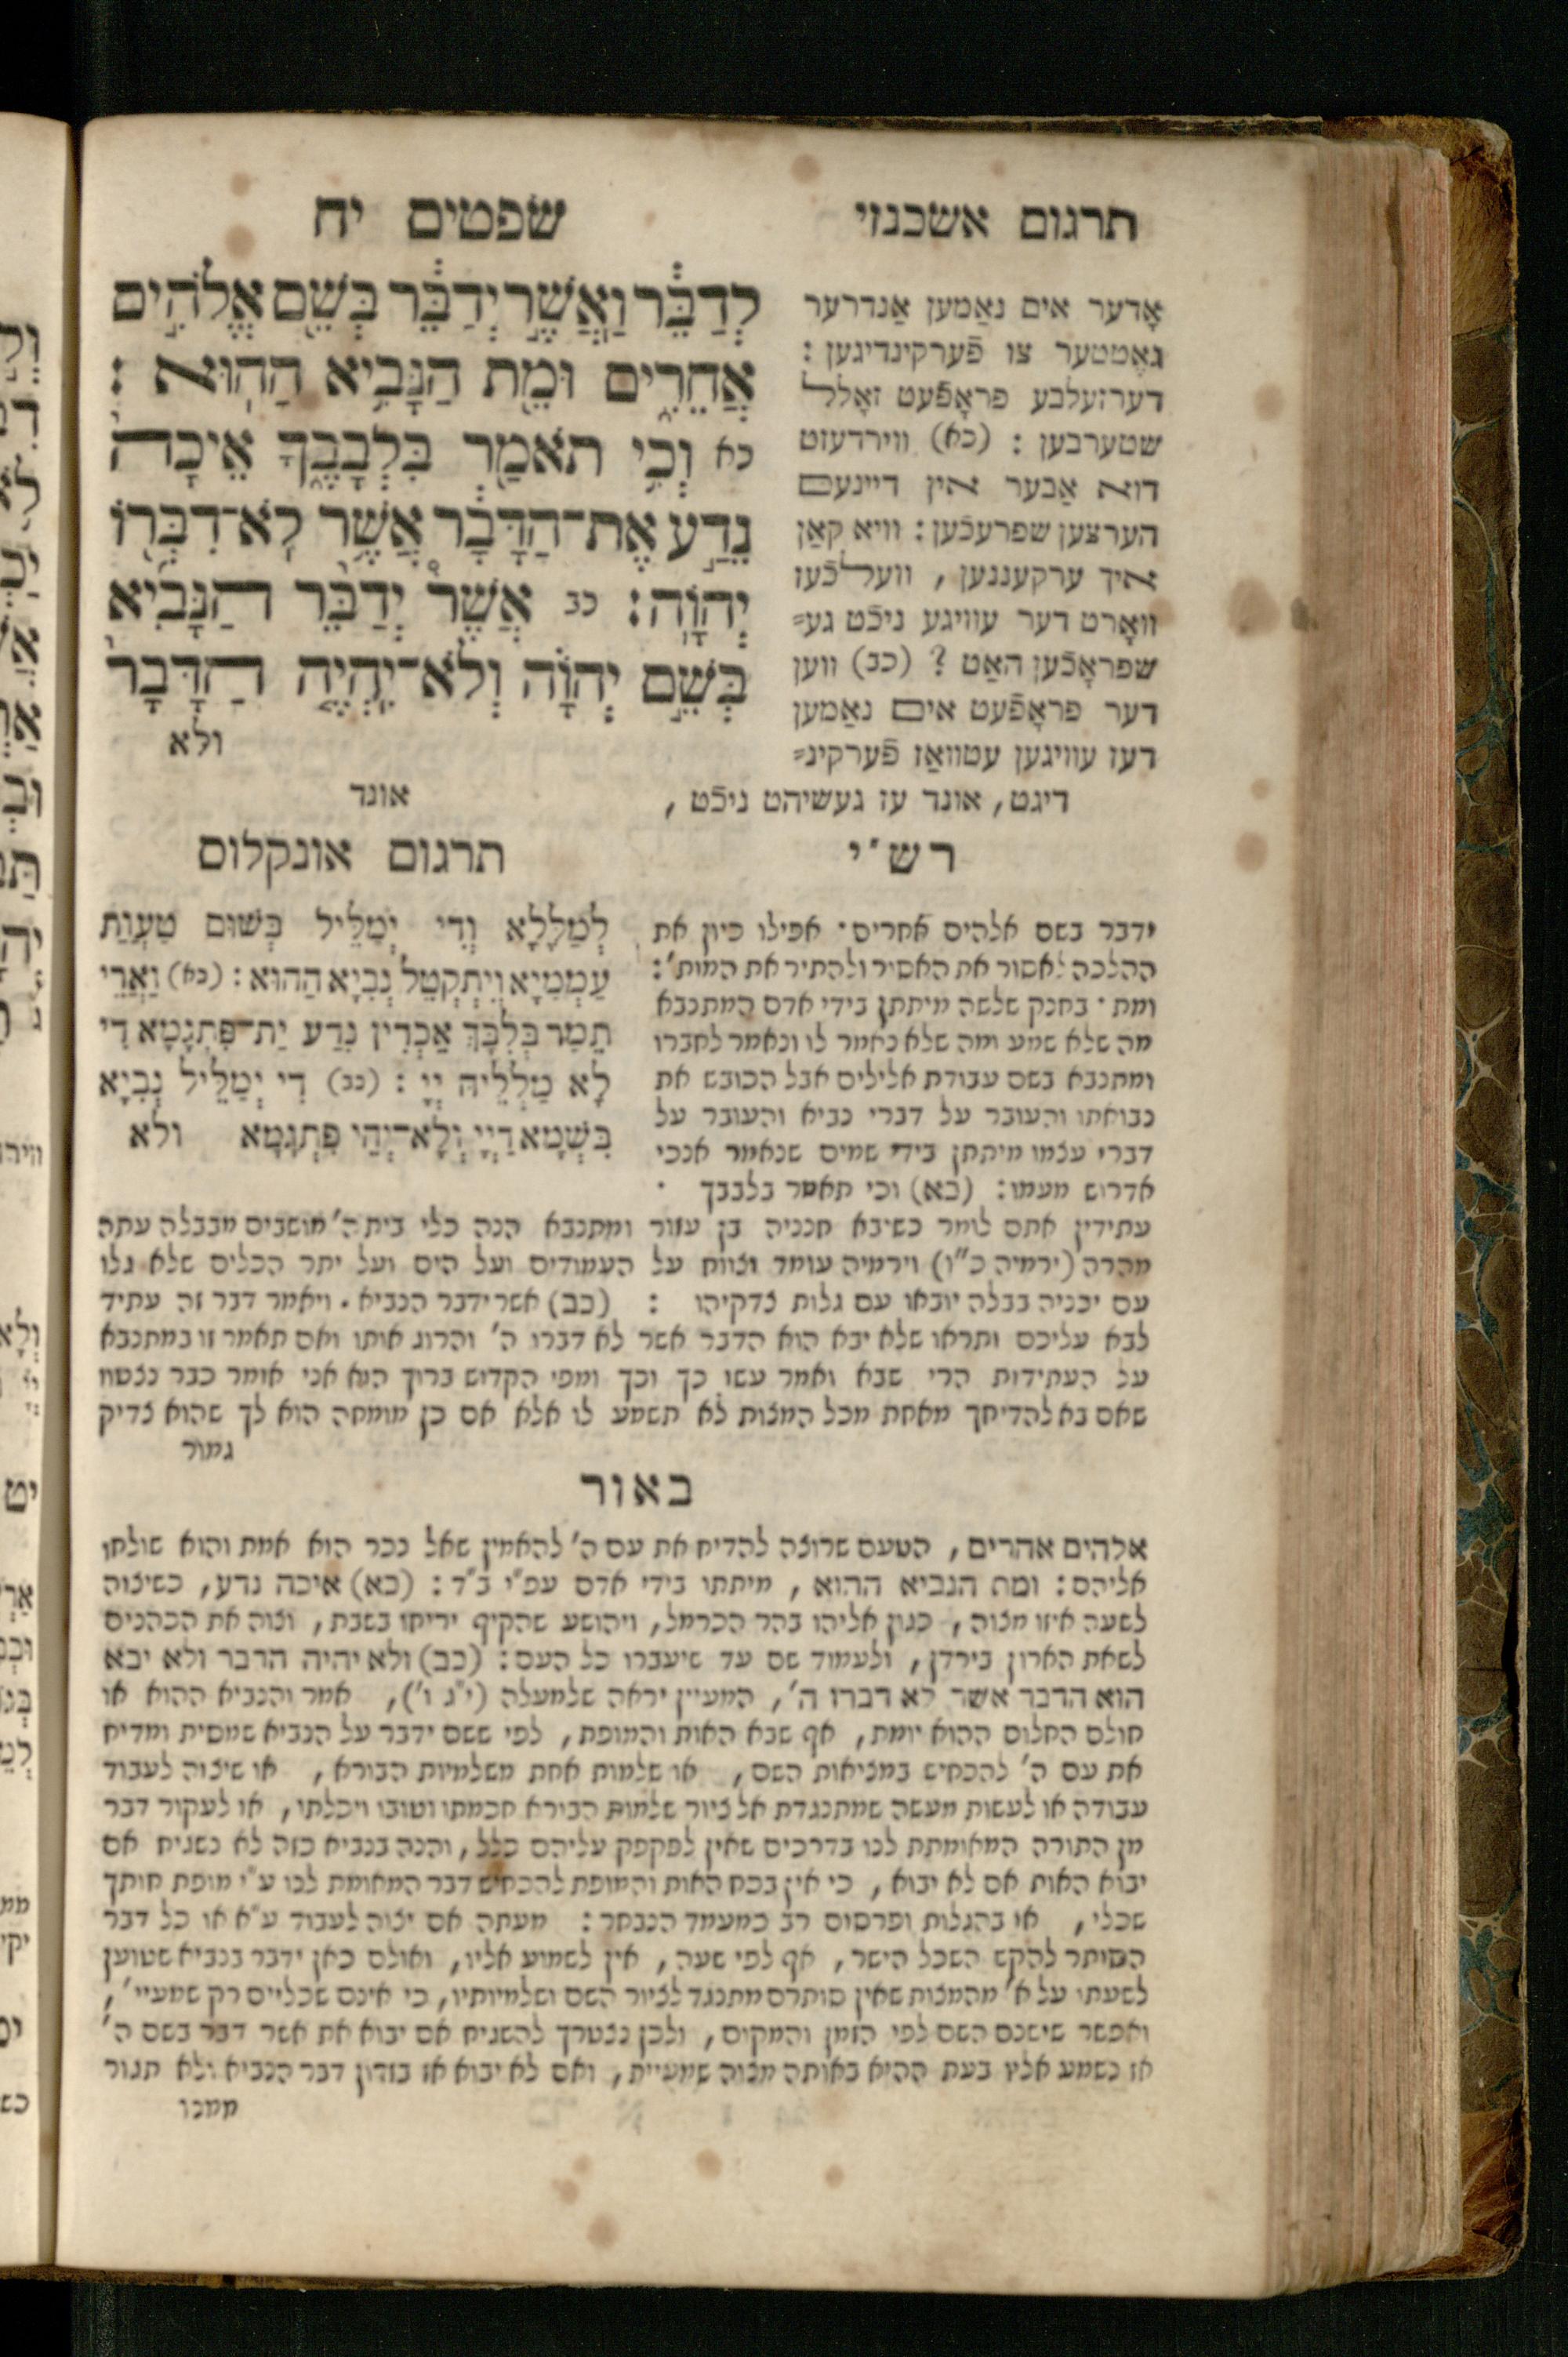 תרגום אשכנזי
שפטים יח
לְדַבֵּ֔ר וַאֲשֶׁ֣ר יְדַבֵּ֔ר בְּשֵׁ֖ם אֱלֹהִ֣ים
אֲחֵרִ֑ים וּמֵ֖ת הַנָּבִ֥יא הַהֽוּא :
כא וְכִ֥י תֹאמַ֖ר בִּלְבָבֶ֑ךָ אֵיכָה֙
נֵדַ֣ע אֶת־הַדָּבָ֔ר אֲשֶׁ֥ר לֹֽא־דִבְּר֖וֹ
יְהוָֽה: כב אֲשֶׁר֩ יְדַבֵּ֨ר הַנָּבִ֜יא
בְּשֵׁ֣ם יְהוָ֗ה וְלֹֽא־יִהְיֶ֤ה הַדָּבָר֙
ולא
אָדער אים נאַמען אַנדרער
גאָטטער צו פֿערקינדיגען :
דערזעלבע פראָפֿעט זאָלל
שטערבען : (כא) ווירדעזט
דוא אַבער אין דיינעם
הערצען שפרעכֿען : וויא קאַן
איך ערקעננען , וועלכֿעז
וואָרט דער עוויגע ניכֿט גע=
שפראָכֿען האַט ? (כב) ווען
דער פראָפֿעט אים נאַמען
דעז עוויגען עטוואַז פֿערקינ=
דיגט, אונד עז געשיהט ניכֿט ,
אונד
רש"י
ידבר בשם אלהים אחרים· אפילו כיון את
ההלכה לאסור את האסיר ולהתיר את המות':
ומת · בחנק שלשה מיתתן בידי אדם המתנבא
מה שלא שמע ומה שלא נאמר לו ונאמר לחברו
ומתנבא בשם עבודת אלילים אבל הכובש את
נבואתו והעובר על דברי נביא והעובר על
דברי עצמו מיתתן בידי שמים שנאמר אנכי
אדרוש מעמו: (כא) וכי תאמר בלבבך ·
עתידין אתם לומר כשיבא חנניה בן עזור ומתנבא הנה כלי בית ה' מושבים מבבלה עתה
מהרה (ירמיה כ"ו) וירמיה עומד וצווח על העמודים ועל הים ועל יתר הכלים שלא גלו
עם יכניה בבלה יובאו עם גלות צדקיהו : (כב) אשר ידבר הנביא . ויאמר דבר זה עתיד
לבא עליכם ותראו שלא יבא הוא הדבר אשר לא דברו ה' והרוג אותו ואם תאמר זו במתנבא
על העתידות הרי שבא ואמר עשו כך וכך ומפי הקדוש ברוך הוא אני אומר כבר נצטוו
שאם בא להדיחך מאחת מכל המצות לא תשמע לו אלא אם כן מומחה הוא לך שהוא צדיק
גמור
תרגום אונקלוס
לְמַלָּלָא וְדִי יְמַלֵּיל בְּשׁוּם טַעֲוַת
עַמְמַיָּא וְיִתְקְטֵל נְבִיָּא הַהוּא : (כא) וַאֲרֵי
תֵמַר בְּלִבָּךְ אַכְדֵין נִדַּע יַת־פִּתְגָמָא דִי
לָא מַלְלֵיהּ יְיָ : (כב) דִי יְמַלֵּיל נְבִיָּא
בִּשְׁמָא דַיְיָ וְלָא־יְהֵי פִתְגָמָא ולא
באור
אלהים אחרים , הטעם שרוצה להדיח את עם ה' להאמין שאל נכר הוא אמת והוא שולחו
אליהם : ומת הנביא ההוא , מיתתו בידי אדם עפ"י ב"ד : (כא) איכה נדע, כשיצוה
לשעה איזו מצוה , כגון אליהו בהר הכרמל, ויהושע שהקיף יריחו בשבת , וצוה את הכהנים
לשאת הארון בירדן , ולעמוד שם עד שיעברו כל העם : (כב) ולא יהיה הדבר ולא יבא
הוא הדבר אשר לא דברו ה', המעיין יראה שלמעלה (י"ג ו'), אמר והנביא ההוא או
חולם החלום ההוא יומת , אף שבא האות והמופת , לפי ששם ידבר על הנביא שמסית ומדיח
את עם ה' להכחיש במציאות השם , או שלמות אחת משלמיות הבורא , או שיצוה לעבוד
עבודה או לעשות מעשה שמתנגדת אל ציור שלמות הבורא חכמתו וטובו ויכלתו, או לעקור דבר
מן התורה המאומתת לנו בדרכים שאין לפקפק עליהם כלל, והנה בנביא כזה לא נשגיח אם
יבוא האות אם לא יבוא , כי אין בכח האות והמופת להכחיש דבר המאומת לנו ע"י מופת חותך
שכלי , או בהגלות ופרסום רב כמעמד הנבחר : מעתה אם יצוה לעבוד ע"א או כל דבר
הסותר להקש השכל הישר, אף לפי שעה , אין לשמוע אליו , ואולם כאן ידבר בנביא שטוען
לשעתו על א' מהמצות שאין סותרם מתנגד לציור השם ושלמיותיו, כי אינם שכליים רק שמעיי' ,
ואפשר שישנם השם לפי הזמן והמקום , ולכן נצטרך להשגיח אם יבוא את אשר דבר בשם ה'
אז נשמע אליו בעת ההיא באותה מצוה שמעיית , ואם לא יבוא אז בזדון דבר הנביא ולא תגור
ממנו